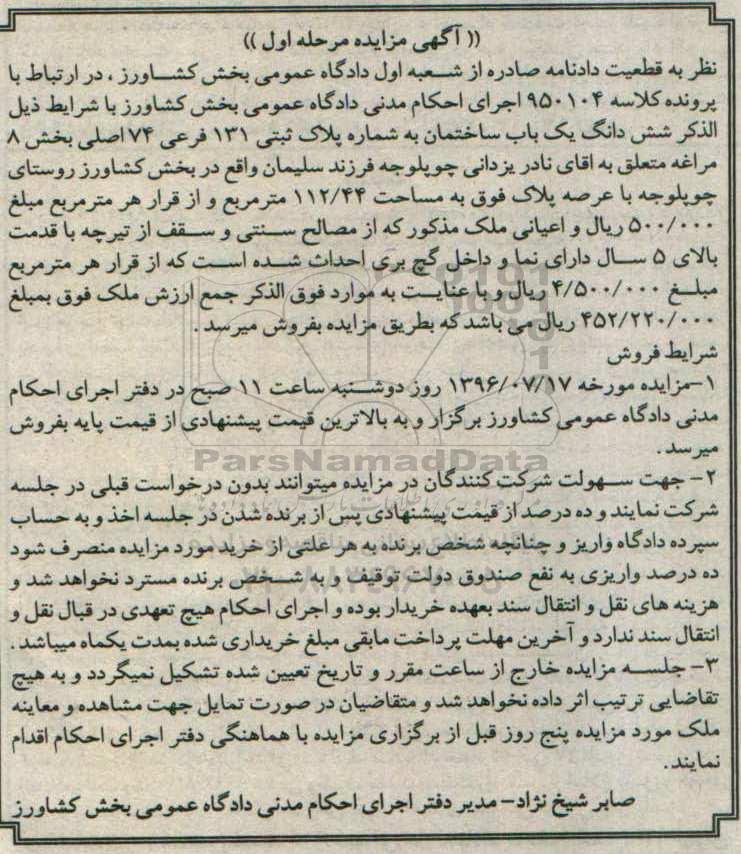 (( آگهی مزایده مرحله اول ))
نظر به قطعیت دادنامه صادره از شعبه اول دادگاه عمومی بخش کشاورز ، در ارتباط با
پرونده کلاسه ۹۵۰۱۰۴ اجرای احکام مدنی دادگاه عمومی بخش کشاورز با شرایط ذیل
الذکر شش دانگ یک باب ساختمان به شماره پلاک ثبتی ۱۳۱ فرعی ۷۴ اصلی بخش ۸
مراغه متعلق به اقای نادر یزدانی چوپلوجه فرزند سلیمان واقع در بخش کشاورز روستای
چوپلوجه با عرصه پلاک فوق به مساحت ۱۱۲/۴۴ مترمربع و از قرار هر مترمربع مبلغ
۵۰۰/۰۰۰ ریال و اعیانی ملک مذکور که از مصالح سنتی و سقف از تیرچه با قدمت
بالای ۵ سال دارای نما و داخل گچ بری احداث شده است که از قرار هر مترمربع
مبلغ ۴/۵۰۰/۰۰۰ ریال و با عنایت به موارد فوق الذکر جمع ارزش ملک فوق بمبلغ
۴۵۲/۲۲۰/۰۰۰ ریال می باشد که بطریق مزایده بفروش میرسد .
شرایط فروش
۱-مزایده مورخه ۱۳۹۶/۰۷/۱۷ روز دوشنبه ساعت ۱۱ صبح در دفتر اجرای احکام
مدنی دادگاه عمومی کشاورز برگزار و به بالاترین قیمت پیشنهادی از قیمت پایه بفروش
میرسد .
ParsNamadData
۲- جهت سهولت شرکت کنندگان در مزایده میتوانند بدون درخواست قبلی در جلسه
شرکت نمایند و ده درصد از قیمت پیشنهادی پس از برنده شدن در جلسه اخذ و به حساب
سپرده دادگاه واریز و چنانچه شخص برنده به هر علتی از خرید مورد مزایده منصرف شود
ده درصد واریزی به نفع صندوق دولت توقیف و به شخص برنده مسترد نخواهد شد و
هزینه های نقل و انتقال سند بعهده خریدار بوده و اجرای احکام هیچ تعهدی در قبال نقل و
انتقال سند ندارد و آخرین مهلت پرداخت مابقی مبلغ خریداری شده بمدت یکماه میباشد .
۳- جلسه مزایده خارج از ساعت مقرر و تاریخ تعیین شده تشکیل نمیگردد و به هیچ
تقاضایی ترتیب اثر داده نخواهد شد و متقاضیان در صورت تمایل جهت مشاهده و معاینه
ملک مورد مزایده پنج روز قبل از برگزاری مزایده با هماهنگی دفتر اجرای احکام اقدام
نمایند.
صابر شیخ نژاد- مدیر دفتر اجرای احکام مدنی دادگاه عمومی بخش کشاورز